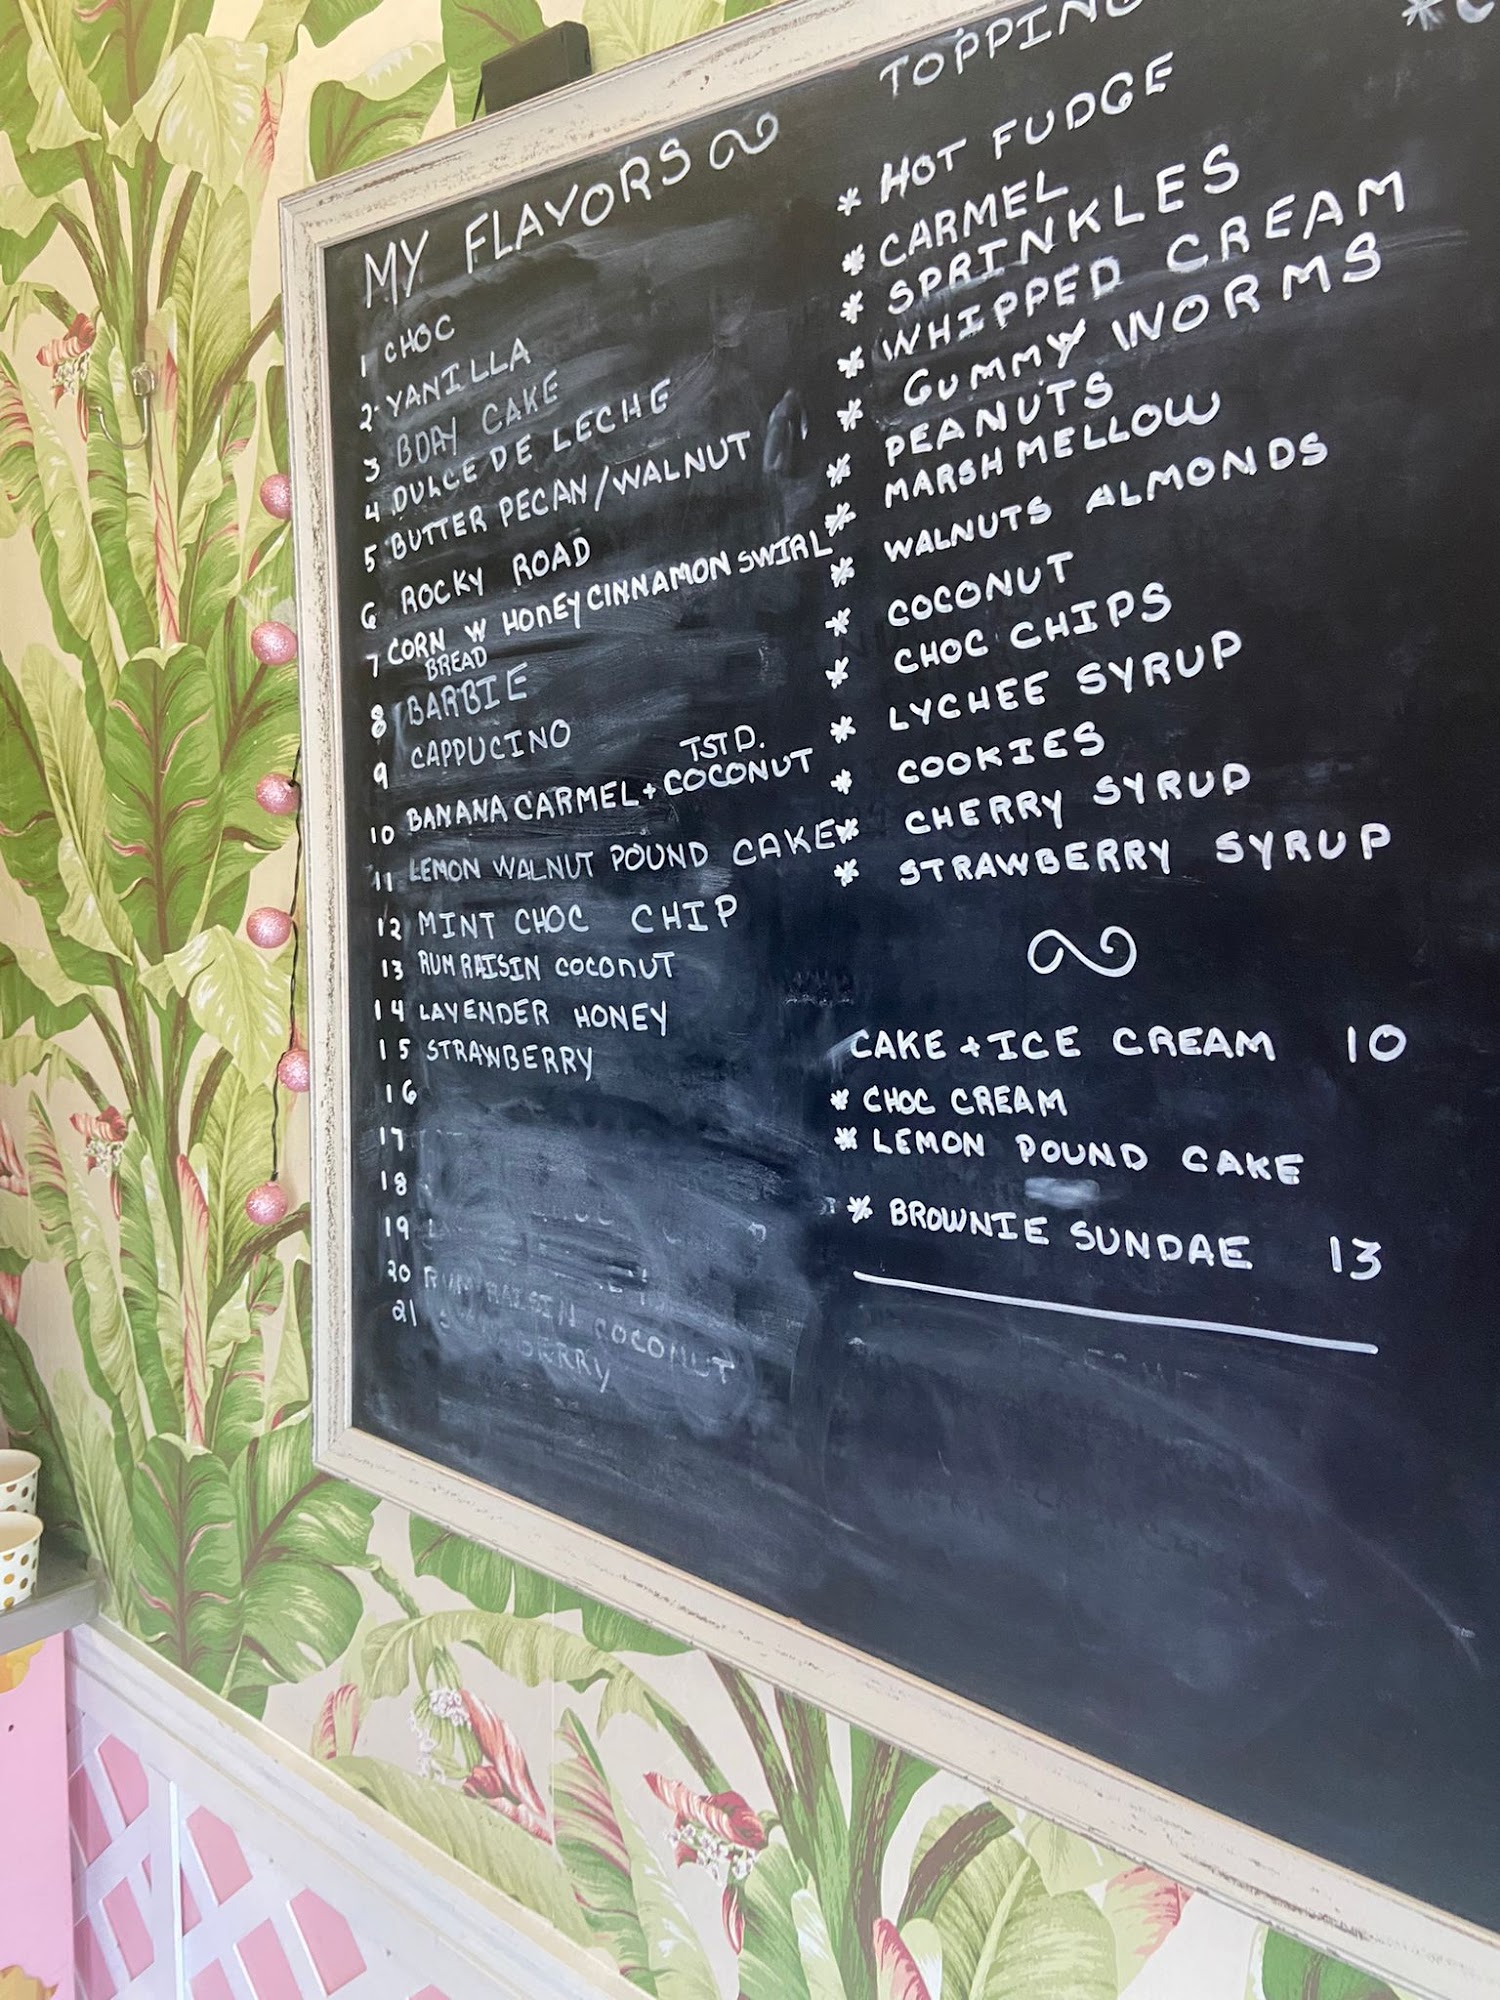 MY FLAVORS
1 CHOC
2 VANILLA
3 BDAY CAKE
4 DULCE DE LECHE
5 BUTTER PECAN/WALNUT
6 ROCKY ROAD
7 CORN W HONEY CINNAMON SWIRL
BREAD
8 BARBIE
9 CAPPUCINO
TSTD.
10 BANANA CARMEL + COCONUT
11 LEMON WALNUT POUND CAKE
12 MINT CHOC CHIP
13 RUM RAISIN COCONUT
14 LAVENDER HONEY
15 STRAWBERRY
16
17
18
19
20 RUM RAISIN COCONUT
21
* HOT FUDGE
* CARMEL
* SPRINKLES
* WHIPPED CREAM
* GUMMY WORMS
* PEANUTS
* MARSHMELLOW
* WALNUTS ALMONDS
* COCONUT
* CHOC CHIPS
* LYCHEE SYRUP
* COOKIES
* CHERRY SYRUP
* STRAWBERRY SYRUP
CAKE + ICE CREAM 10
* CHOC CREAM
* LEMON POUND CAKE
* BROWNIE SUNDAE 13